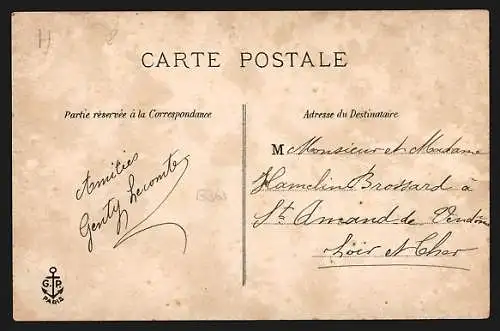 H
CARTE POSTALE
Partie réservée à la Correspondance
Amitiés
Genty Lecomte
Adresse du Destinataire
M Monsieur et Madame
Hamelin Brossard à
St Amand de Vendôm
Loir et Cher
G P
PARIS